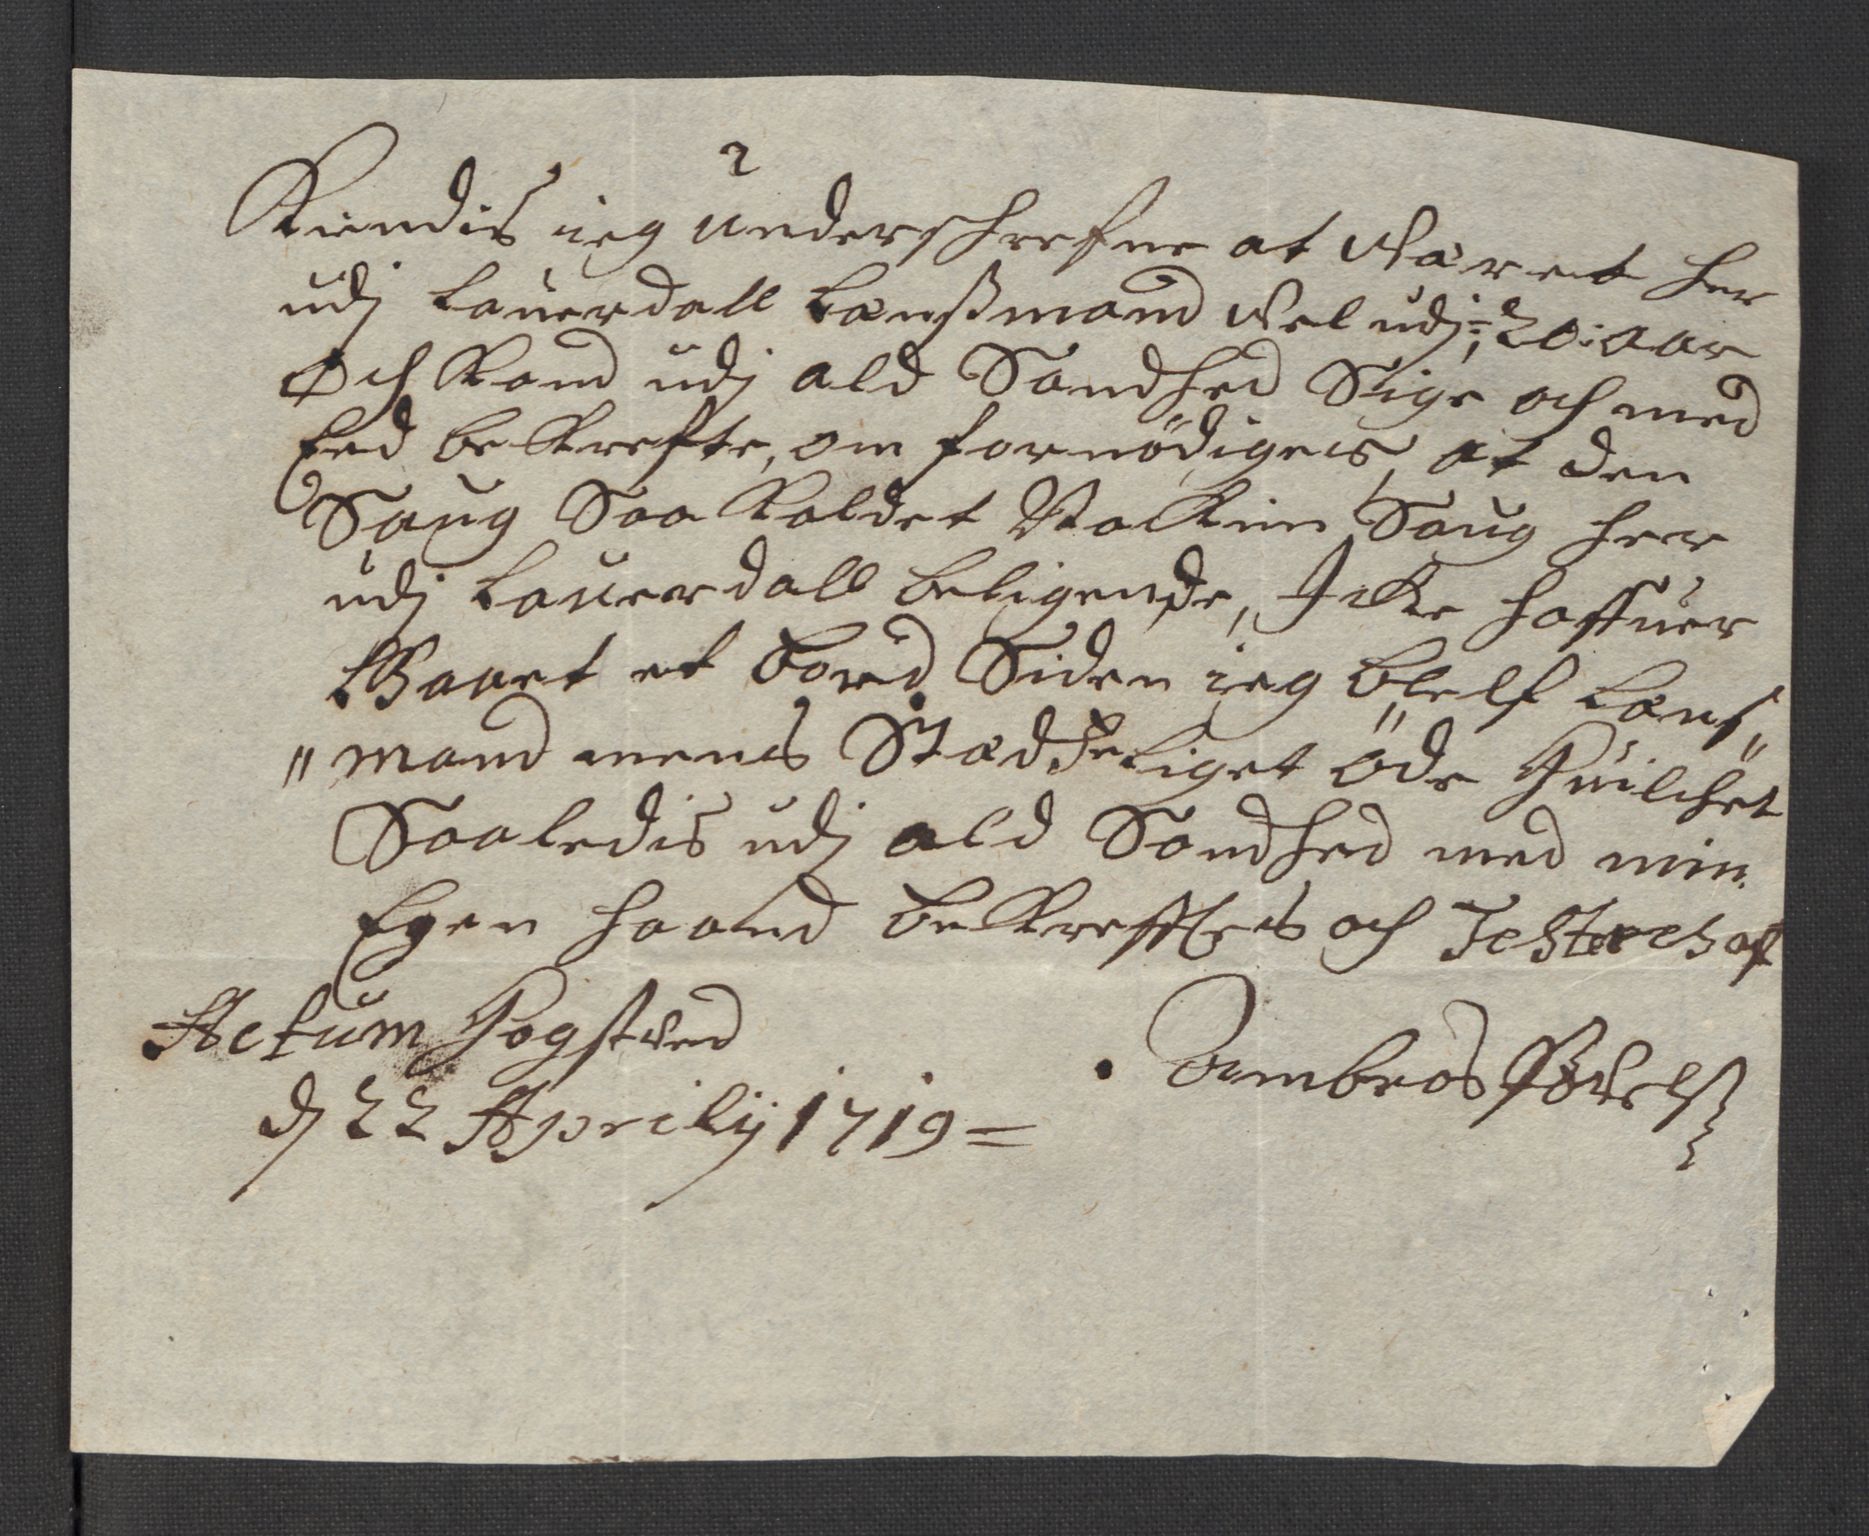 Kiendis ieg underschrefne at Været her
udj Lauerdall Lænßmand Vel udj 20: Aar
Och Kand udj ald Sandhed Sige och med
Eed bekrefte, om fornödiges, at den
Saug Saa Kaldet Valkim Saug her
udj Lauerdall beligende, Icke haffuer
Skaaret et bord Siden ieg bleff Lens„
„mand mens Stedseliget öde Huilchet
Saaledis udj ald Sandhed med min
Egen haand bekrefftes och Testeres aff
Actum Hogstved
dj 22 Aprilij 1719 =
Ambros